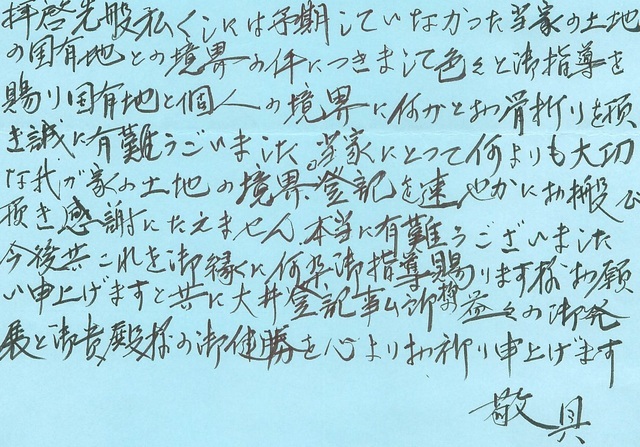 拝啓先般私くしには予期していなかった当家の土地
の国有地との境界の件につきまして色々と御指導を
賜り国有地と個人の境界に何かとお骨折りを頂
き誠に有難うございました。当家にとって何よりも大切
な我が家の土地の境界登記を速やかにお搬び
頂き感謝にたえません。本当に有難うございました
今後共これを御縁に何卒御指導賜ります様お願
い申上げますと共に大井登記事ム所様益々の御発
展と御貴殿様の御健勝を心よりお祈り申上げます
敬具